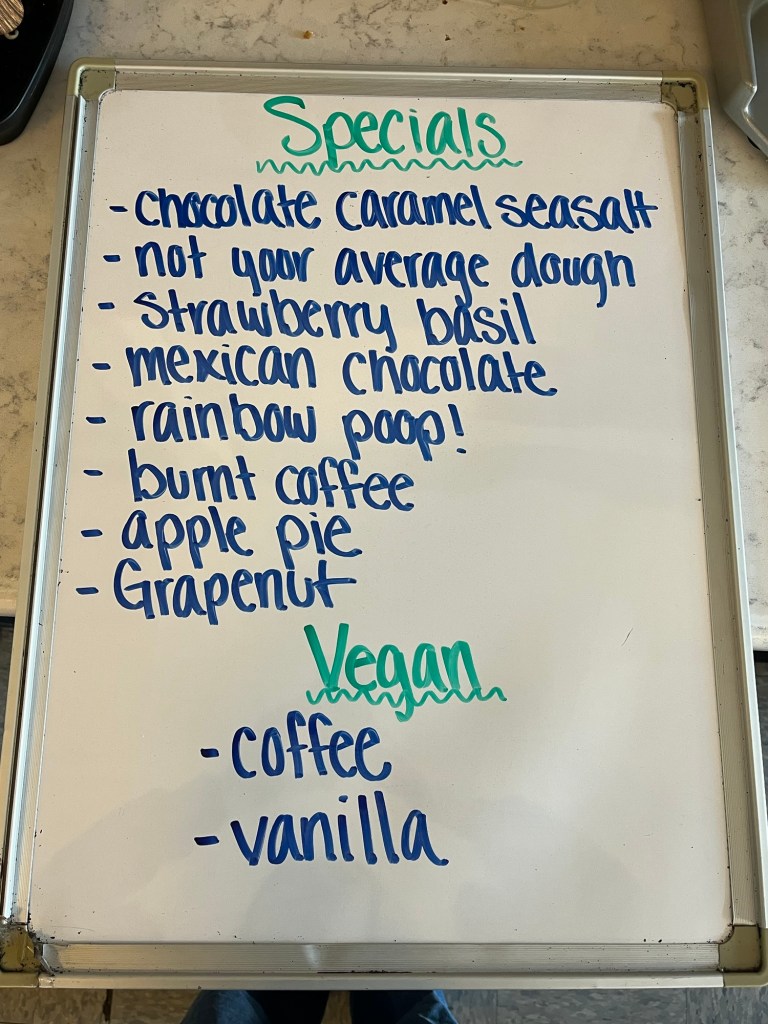 Specials
- chocolate caramel seasalt
- not your average dough
- strawberry basil
- mexican chocolate
- rainbow poop!
- burnt coffee
- apple pie
- Grapenut
Vegan
- coffee
- vanilla